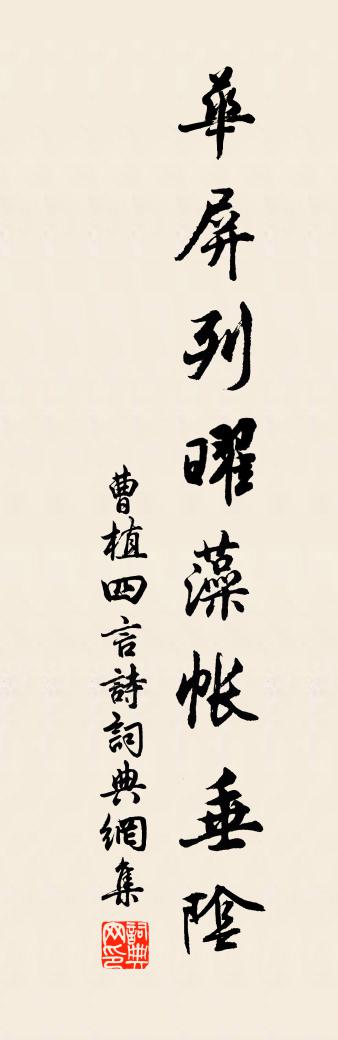 華屏列曜藻帳垂陰
曹植四言詩詞典網集
詞典
网印